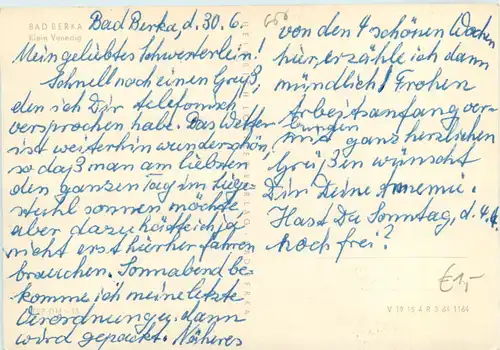 BAD BERKA
Klein Venedig
Bad Berka, d. 30.6.
Mein geliebtes Schwesterlein!
Schnell noch einen Gruß,
den ich Dir telefonisch
versprochen habe. Das Wetter
ist weiterhin wunderschön,
so daß man am liebsten
den ganzen Tag im Liege-
stuhl sonnen möchte
aber dazu hätte ich ja
nicht erst hierher fahren
brauchen. Sonnabend be-
komme ich meine letzte
Verordnung u. dann
wird gepackt. Näheres
von den 4 schönen Wochen
hier, erzähle ich dann
mündlich! Frohen
Arbeitsanfang ver-
bunden
mit ganz herzlichen
Grüßen wünscht
Dir Deine Annemie.
Hast Du Sonntag, d. 4.
noch frei?
€1,-
V 19 16 4 R 3 64 1164